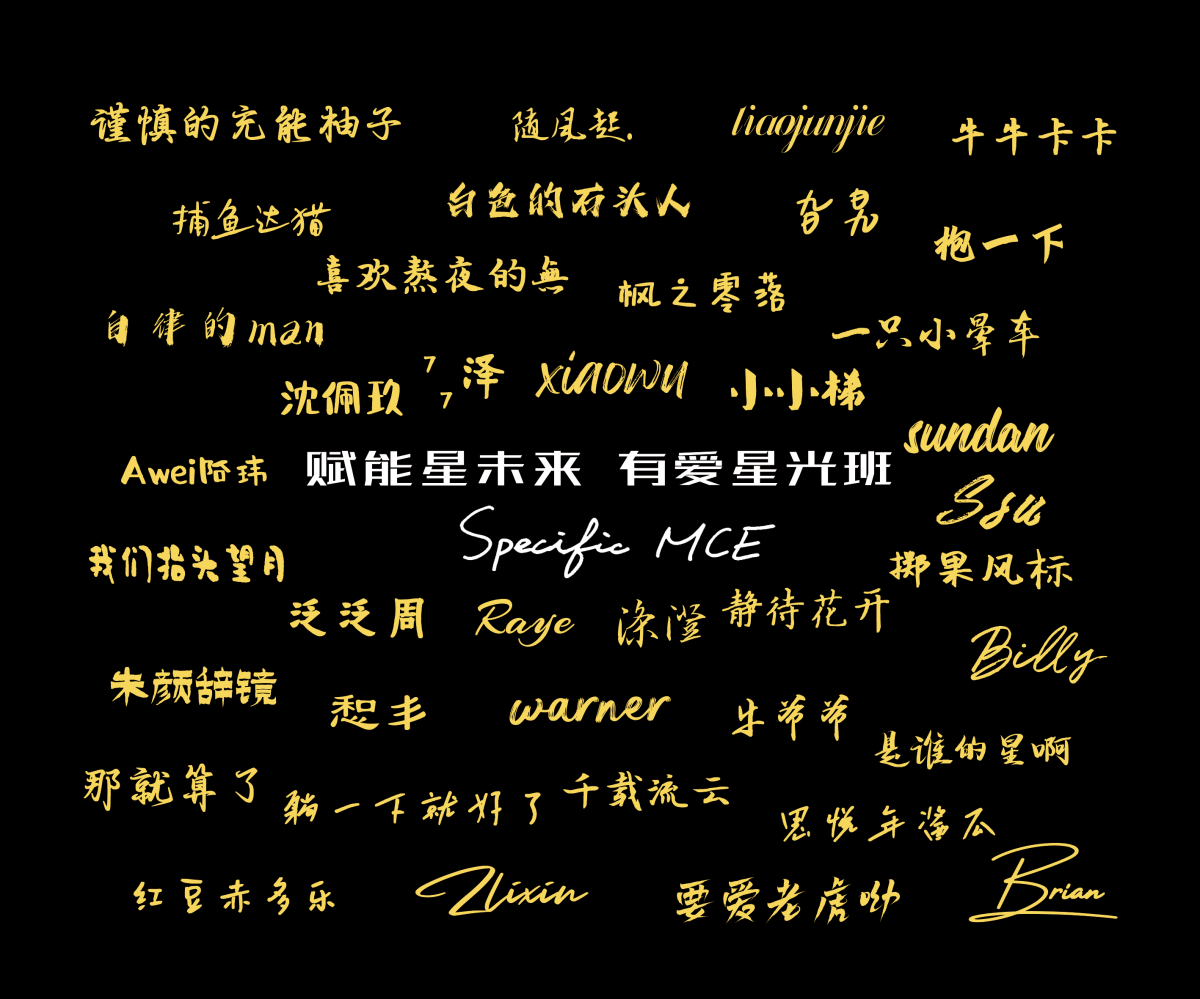 谨慎的充能柚子
随风起.
liaojunjie
牛牛卡卡
捕鱼达猫
白色的石头人
旮旯
抱一下
喜欢熬夜的無
枫之零落
自律的man
一只小晕车
7泽7
xiaowu
小小梯
沈佩玖
sundan
Awei阿玮
赋能星未来 有爱星光班
Ssu
Specific MCE
我们抬头望月
掷果风标
泛泛周
Raye
涤澄
静待花开
Billy
朱颜辞镜
恕丰
warner
牛爷爷
是谁的星啊
那就算了
躺一下就好了
千载流云
思悦年酱瓜
红豆赤多乐
Zlixin
要爱老虎呦
Brian